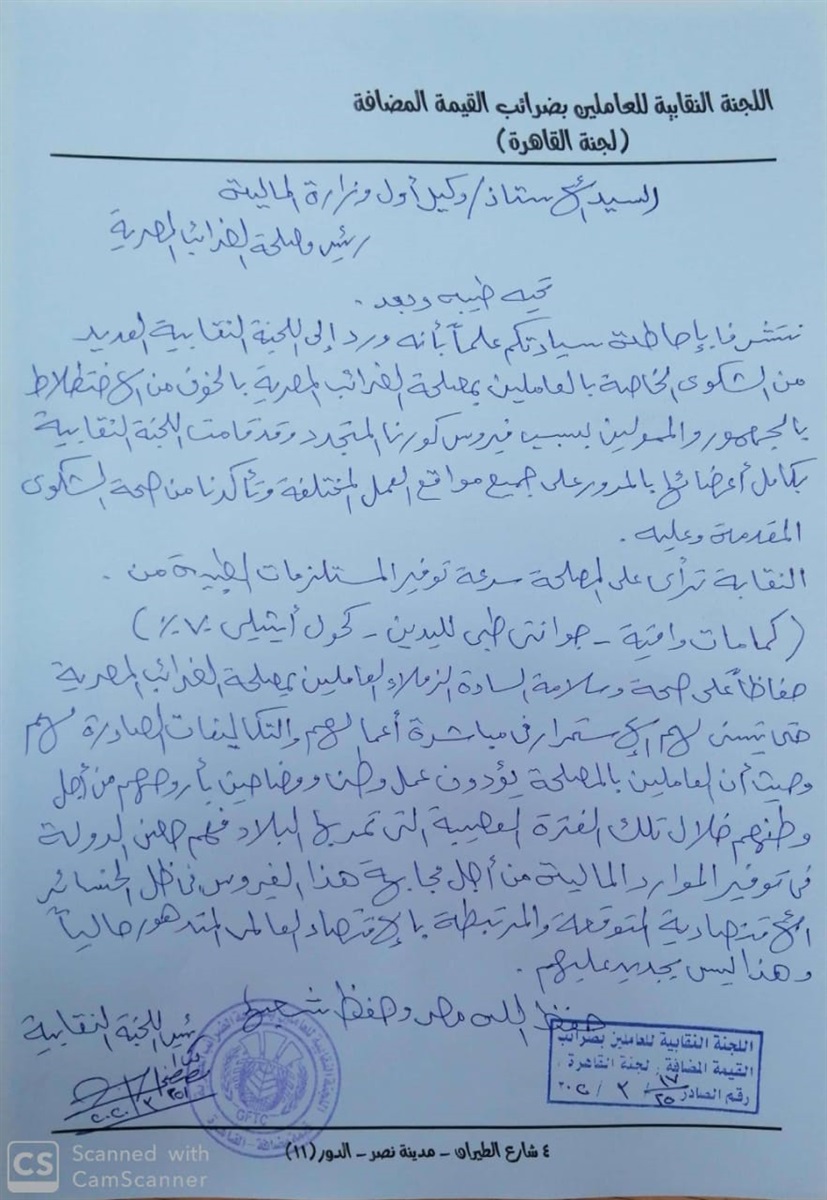 اللجنة النقابية للعاملين بضرائب القيمة المضافة
(لجنة القاهرة)
السيد الأستاذ / وكيل أول وزارة المالية
رئيس مصلحة الضرائب المصرية
تحيه طيبه وبعد .
نتشرف بإحاطة سيادتكم علماً بأنه ورد إلى اللجنة النقابية العديد
من الشكوى الخاصة بالعاملين بمصلحة الضرائب المصرية بالخوف من الاختطلاط
بالجمهور والممولين بسبب فيروس كورنا المتجدد وقد قامت اللجنة النقابية
بكامل أعضائها بالمرور على جميع مواقع العمل المختلفة وتأكدنا من صحة الشكوى
المقدمة وعليه .
النقابة ترأى على المصلحة سرعة توفير المستلزمات الطبية من .
( كمامات واقية - جوانتى طبى لليدين - كحول أيثيلى ٧٠٪ )
حفاظاً على صحة وسلامة السادة الزملاء العاملين بمصلحة الضرائب المصرية
حتى يتسنى لهم الإستمرار فى مباشرة أعمالهم والتكاليفات الصادرة لهم
وحيث أن العاملين بالمصلحة يؤدون عمل وطنى ومضاحين بأروحهم من أجل
وطنهم خلال تلك الفترة العصيبة التى تمر بها البلاد فهم حصن الدولة
فى توفير الموارد المالية من أجل مجابهة هذا الفيروس فى ظل الخسائر
الأقتصادية المتوقعة والمرتبطة بالإقتصاد العالمى المتدهور حالياً
وهذا ليس بجديد عليهم .
حفظ الله مصر وحفظ شعبها
رئيس اللجنة النقابية
اللجنة النقابية للعاملين بضرائب
القيمة المضافة . لجنة القاهرة .
رقم الصادر ١٧ / ٣ / ٢٠٢٠
٢٥
GFTC
٤ شارع الطيران - مدينة نصر - الدور (١١)
CS Scanned with
CamScanner